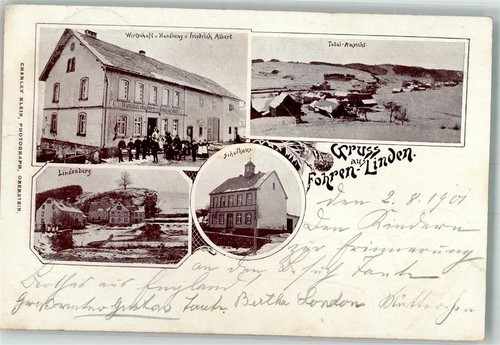 Wirtschaft u Handlung v Friedrich Albert
Total-Ansicht.
CHARLEY KLEIN, PHOTOGRAPH, OBERSTEIN.
Lindenburg
Schulhaus
Gruss
aus
Fohren-Linden.
den 2.8.1901
Den Kindern
zur Erinnerung
an den Besuch Tante
Berthas aus England
Gustav Tante Bertha London